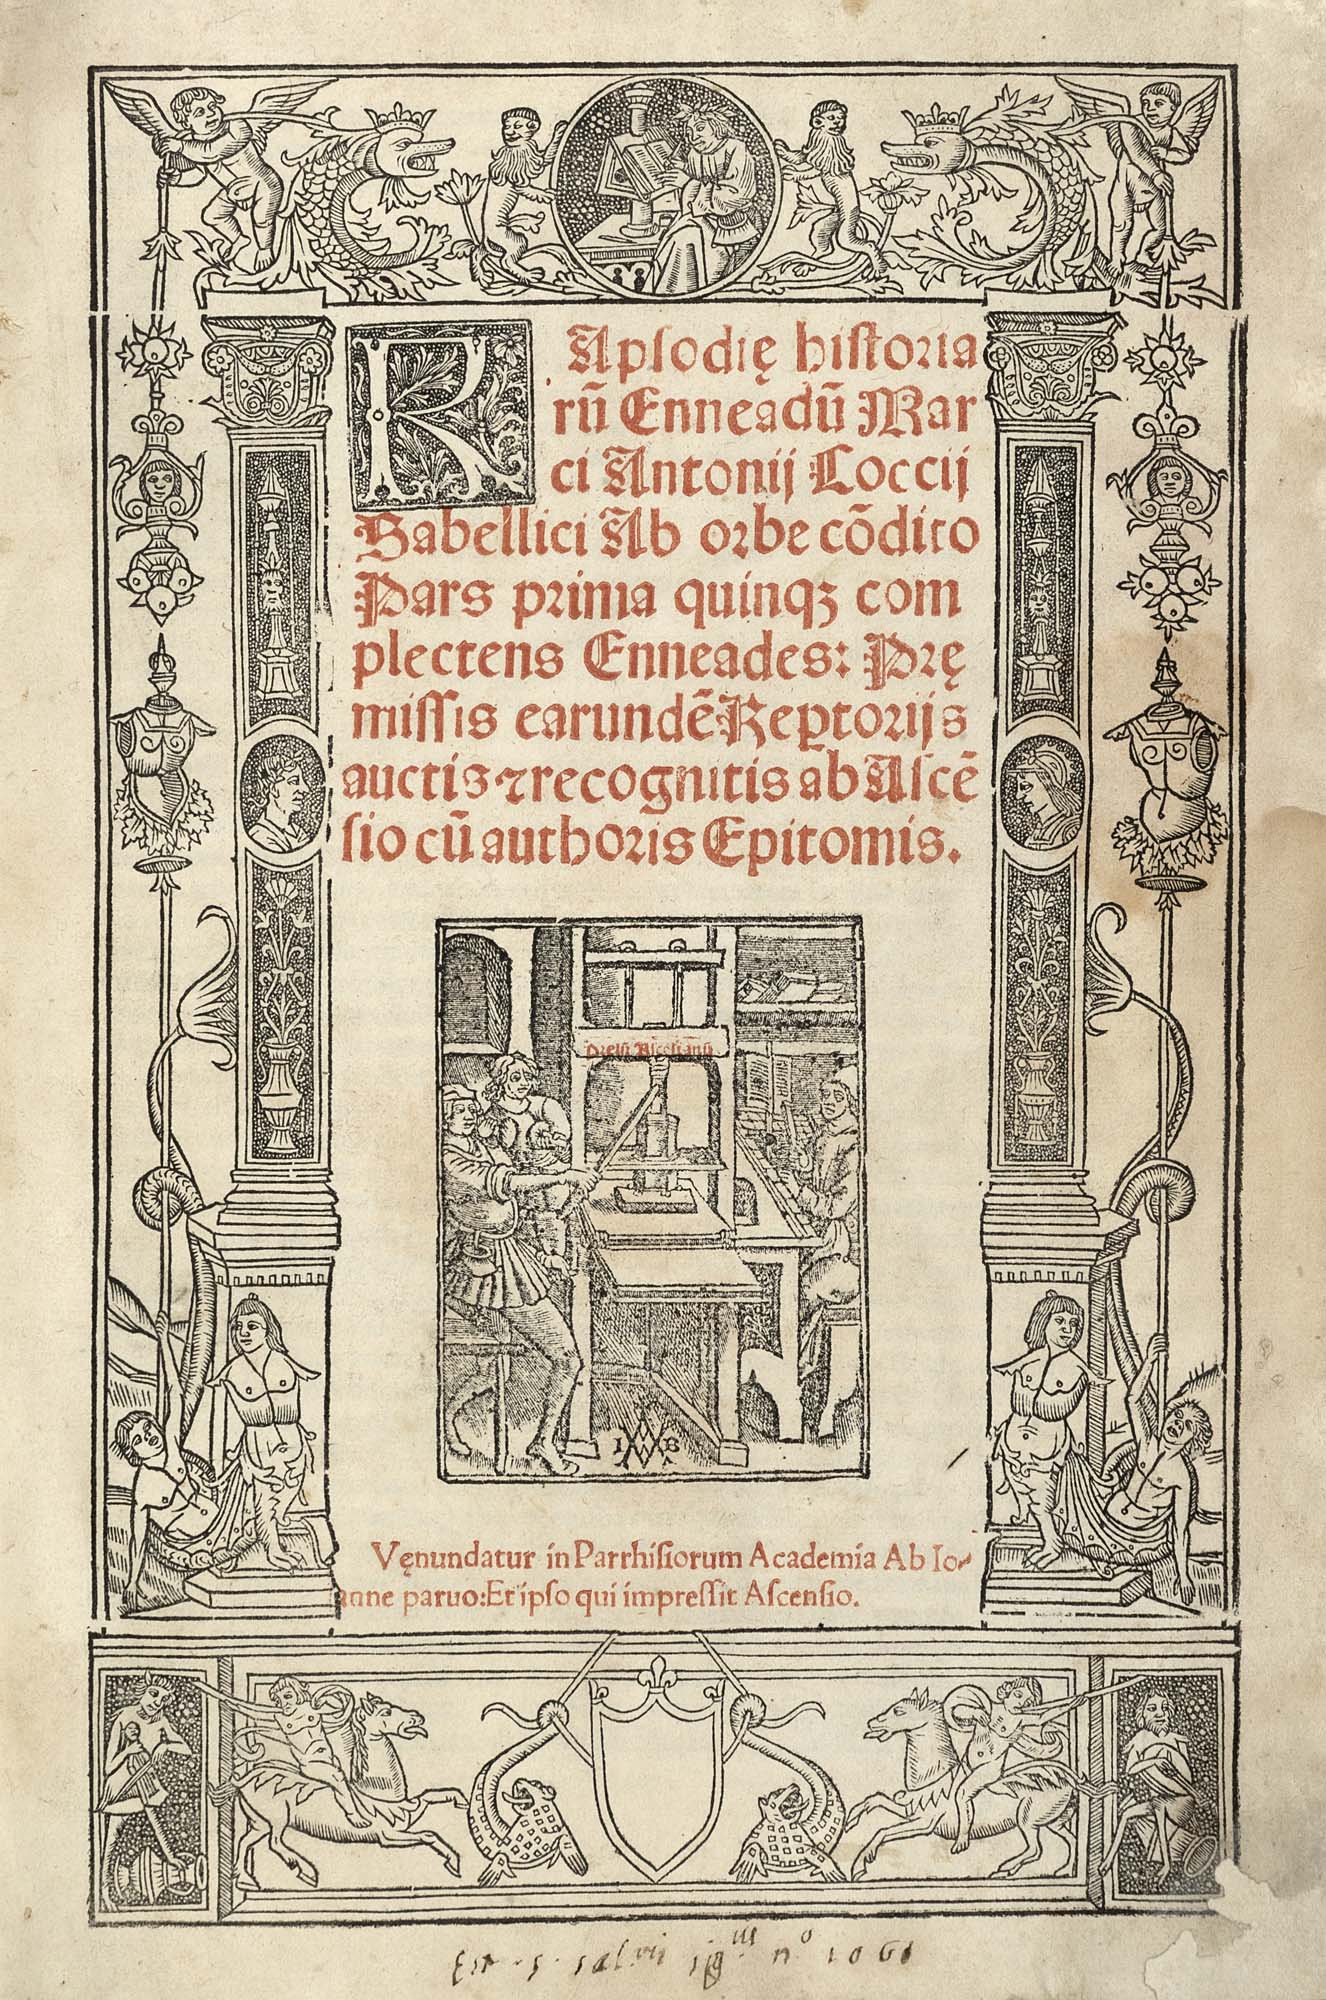 RApsodię historia
rū Enneadū Mar
ci Antonij Coccij
Sabellici Ab orbe cōdito
Pars prima quinqꝫ com
plectens Enneades: Prę
missis earundē Repꝑtorijs
auctis ⁊ recognitis ab Ascē
sio cū authoris Epitomis.
Prelū Ascēsianū
I B
Vęnundatur in Parrhisiorum Academia Ab Io-
anne paruo: Et ipso qui impressit Ascensio.
nº 1061